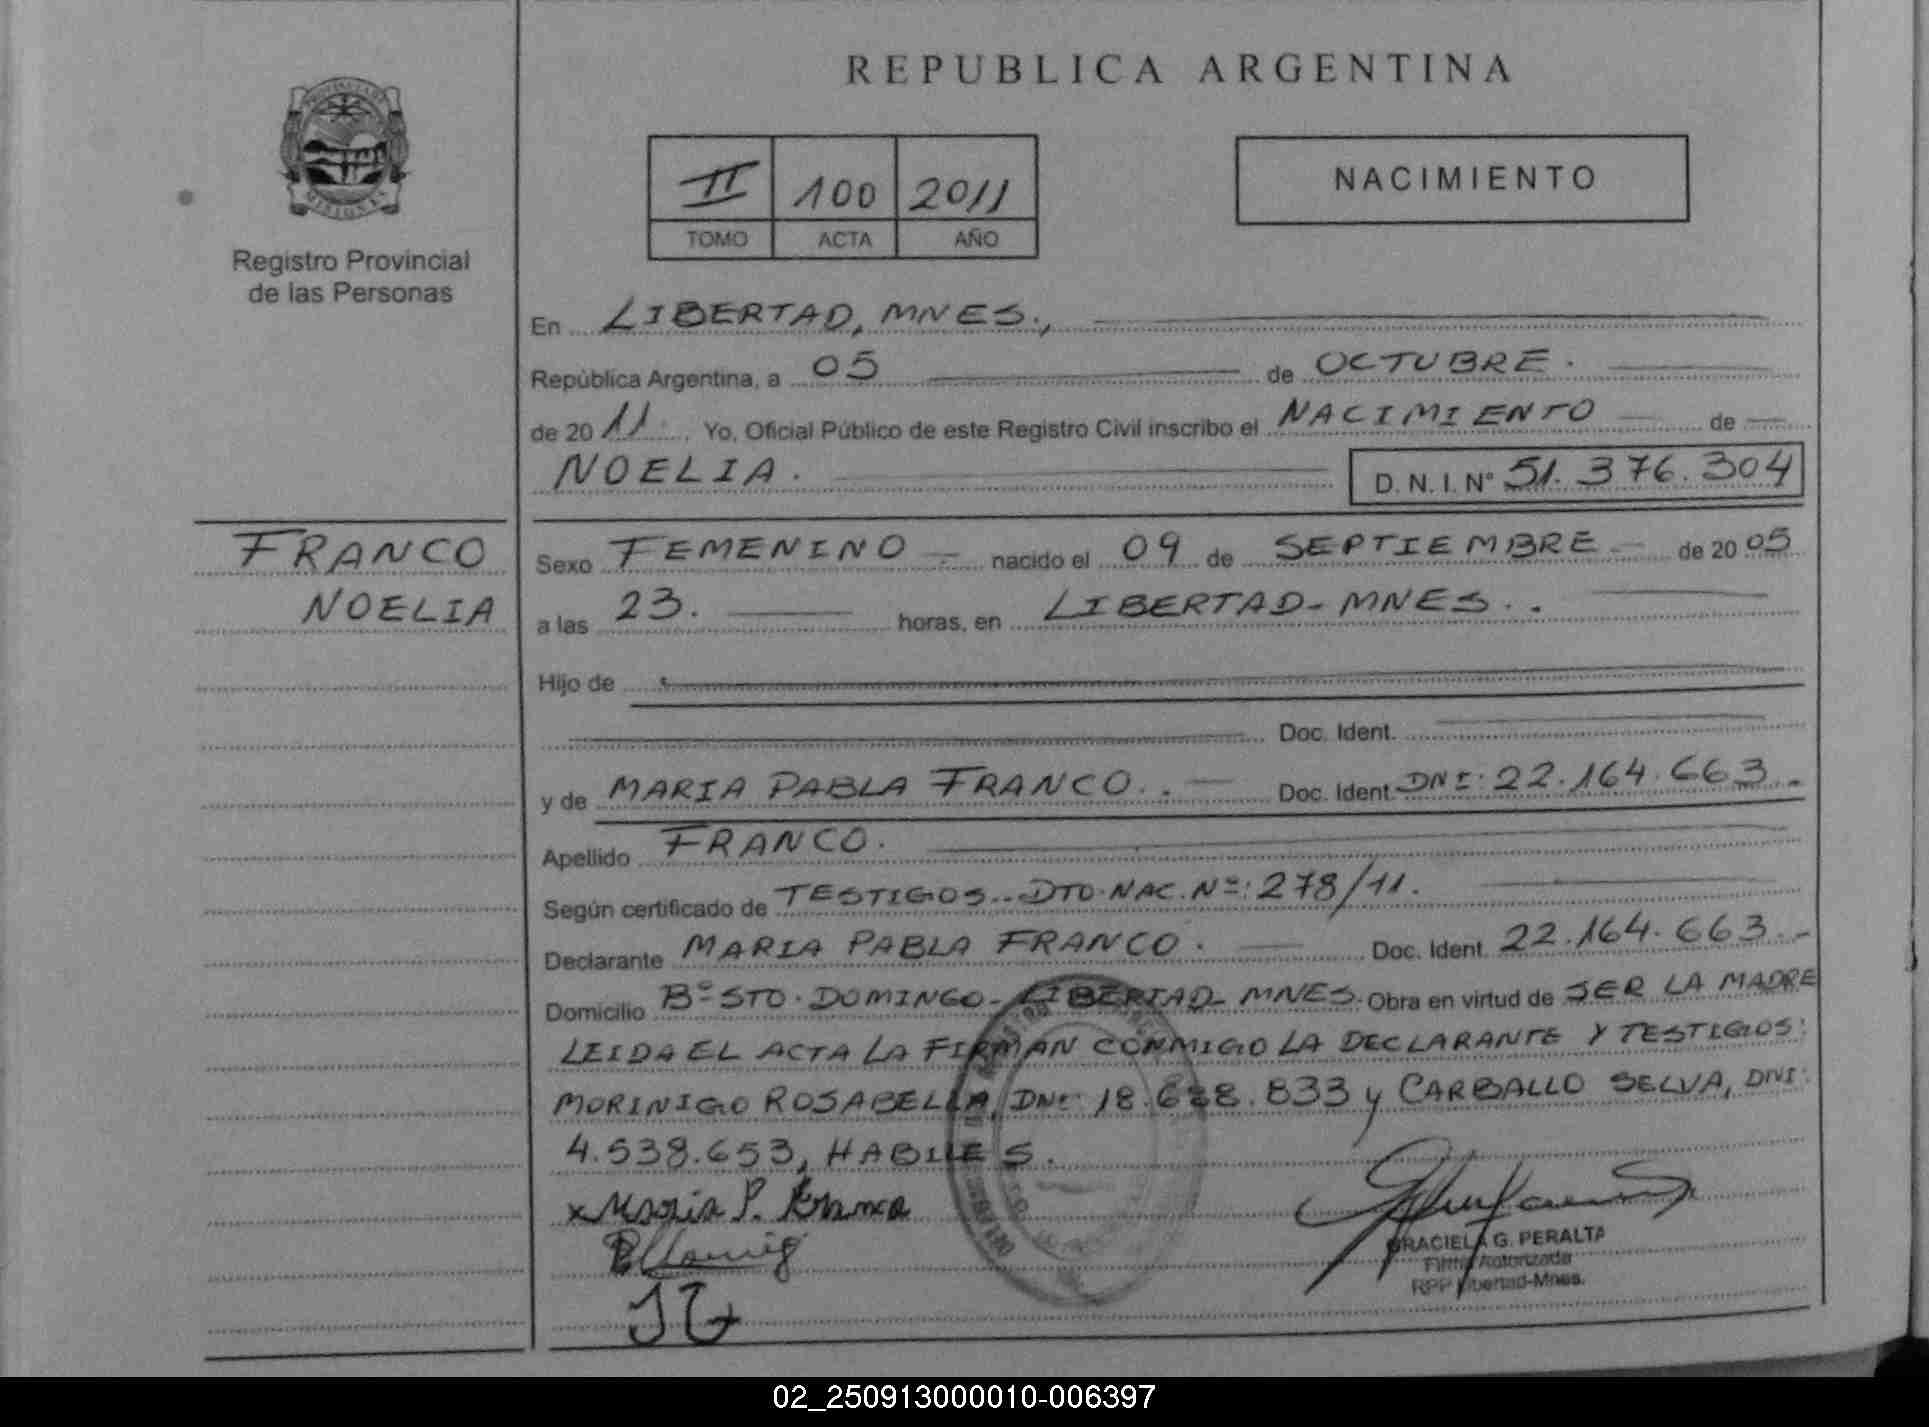 REPUBLICA ARGENTINA
PROVINCIA DE
MISIONES
Registro Provincial
de las Personas
II 100 2011
TOMO ACTA AÑO
NACIMIENTO
En LIBERTAD, MNES.,
República Argentina, a 05 de OCTUBRE.
de 20 11. Yo, Oficial Público de este Registro Civil inscribo el NACIMIENTO de
NOELIA. D. N. I. N° 51.376.304
FRANCO
NOELIA
Sexo FEMENINO nacido el 09 de SEPTIEMBRE de 20 05
a las 23. horas, en LIBERTAD-MNES..
Hijo de
Doc. Ident.
y de MARIA PABLA FRANCO.. Doc. Ident. DNI: 22.164.663.-
Apellido FRANCO.
Según certificado de TESTIGOS.. DTO. NAC. Nº: 278/11.
Declarante MARIA PABLA FRANCO. Doc. Ident. 22.164.663.-
Domicilio Bº STO. DOMINGO- LIBERTAD- MNES. Obra en virtud de SER LA MADRE
LEIDA EL ACTA LA FIRMAN CONMIGO LA DECLARANTE Y TESTIGOS:
MORINIGO ROSABELLA, DNI: 18.688.833 y CARBALLO SELVA, DNI:
4.538.653, HABILES.
x Maria P. Franco
GRACIELA G. PERALTA
Firma Autorizada
RPP Libertad-Mnes.
02_250913000010-006397